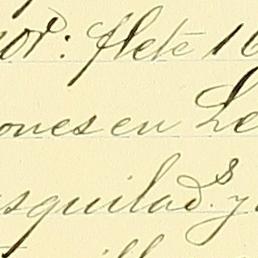 por: flete 16
ones en Le
squilad.s y